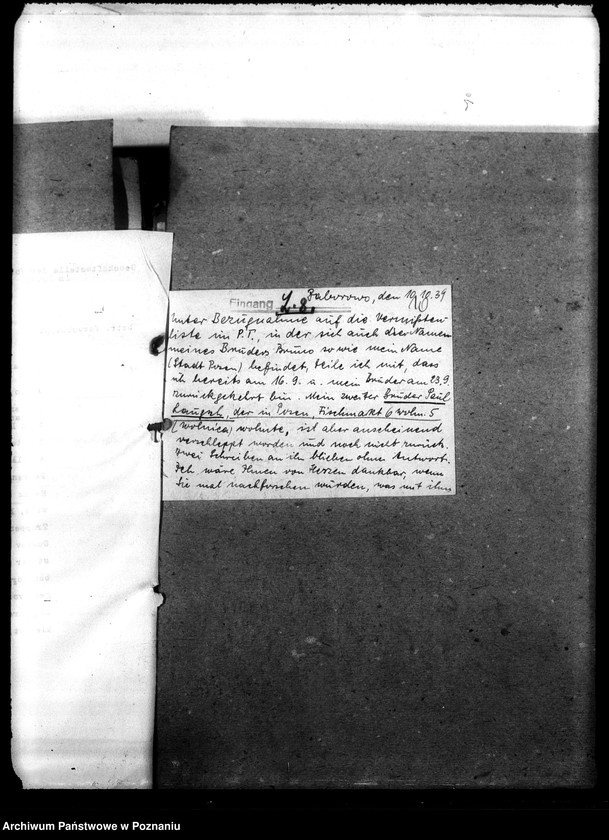 Baborowo, den 10.10.39
Eingang
Unter Bezugnahme auf die Vermissten-
liste im P.T., in der sich auch der Namen
meines Bruders Bruno sowie mein Name
(Stadt Posen) befindet, teile ich mit, dass
ich bereits am 16.9. u. mein Bruder am 23.9.
zurückgekehrt bin. Mein zweiter Bruder Paul
der in Posen, Fischmarkt 6 Wohn. 5
(Wolnica) wohnte, ist aber anscheinend
verschleppt worden und noch nicht zurück.
Zwei Schreiben an ihn blieben ohne Antwort.
Ich wäre Ihnen von Herzen dankbar, wenn
Sie mal nachforschen würden, was mit ihm
Archiwum Państwowe w Poznaniu